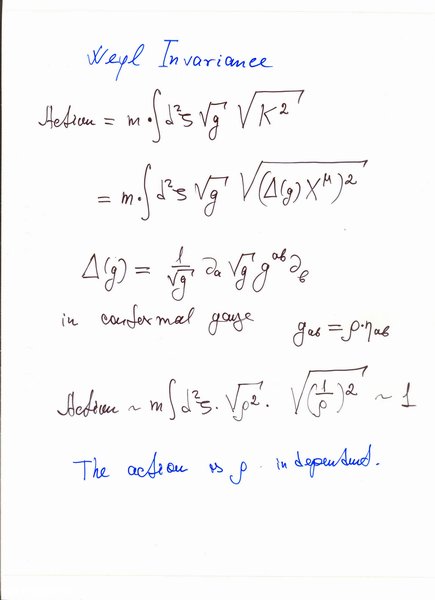 Weyl Invariance
Action = m · ∫ d²ζ √g √K²
= m · ∫ d²ζ √g √(Δ(g) X^μ)²
Δ(g) = 1/√g ∂a √g g^ab ∂b
in conformal gauge g_ab = ρ · η_ab
Action ~ m ∫ d²ζ · √ρ² · √(1/ρ)² ~ 1
The action is ρ independent.